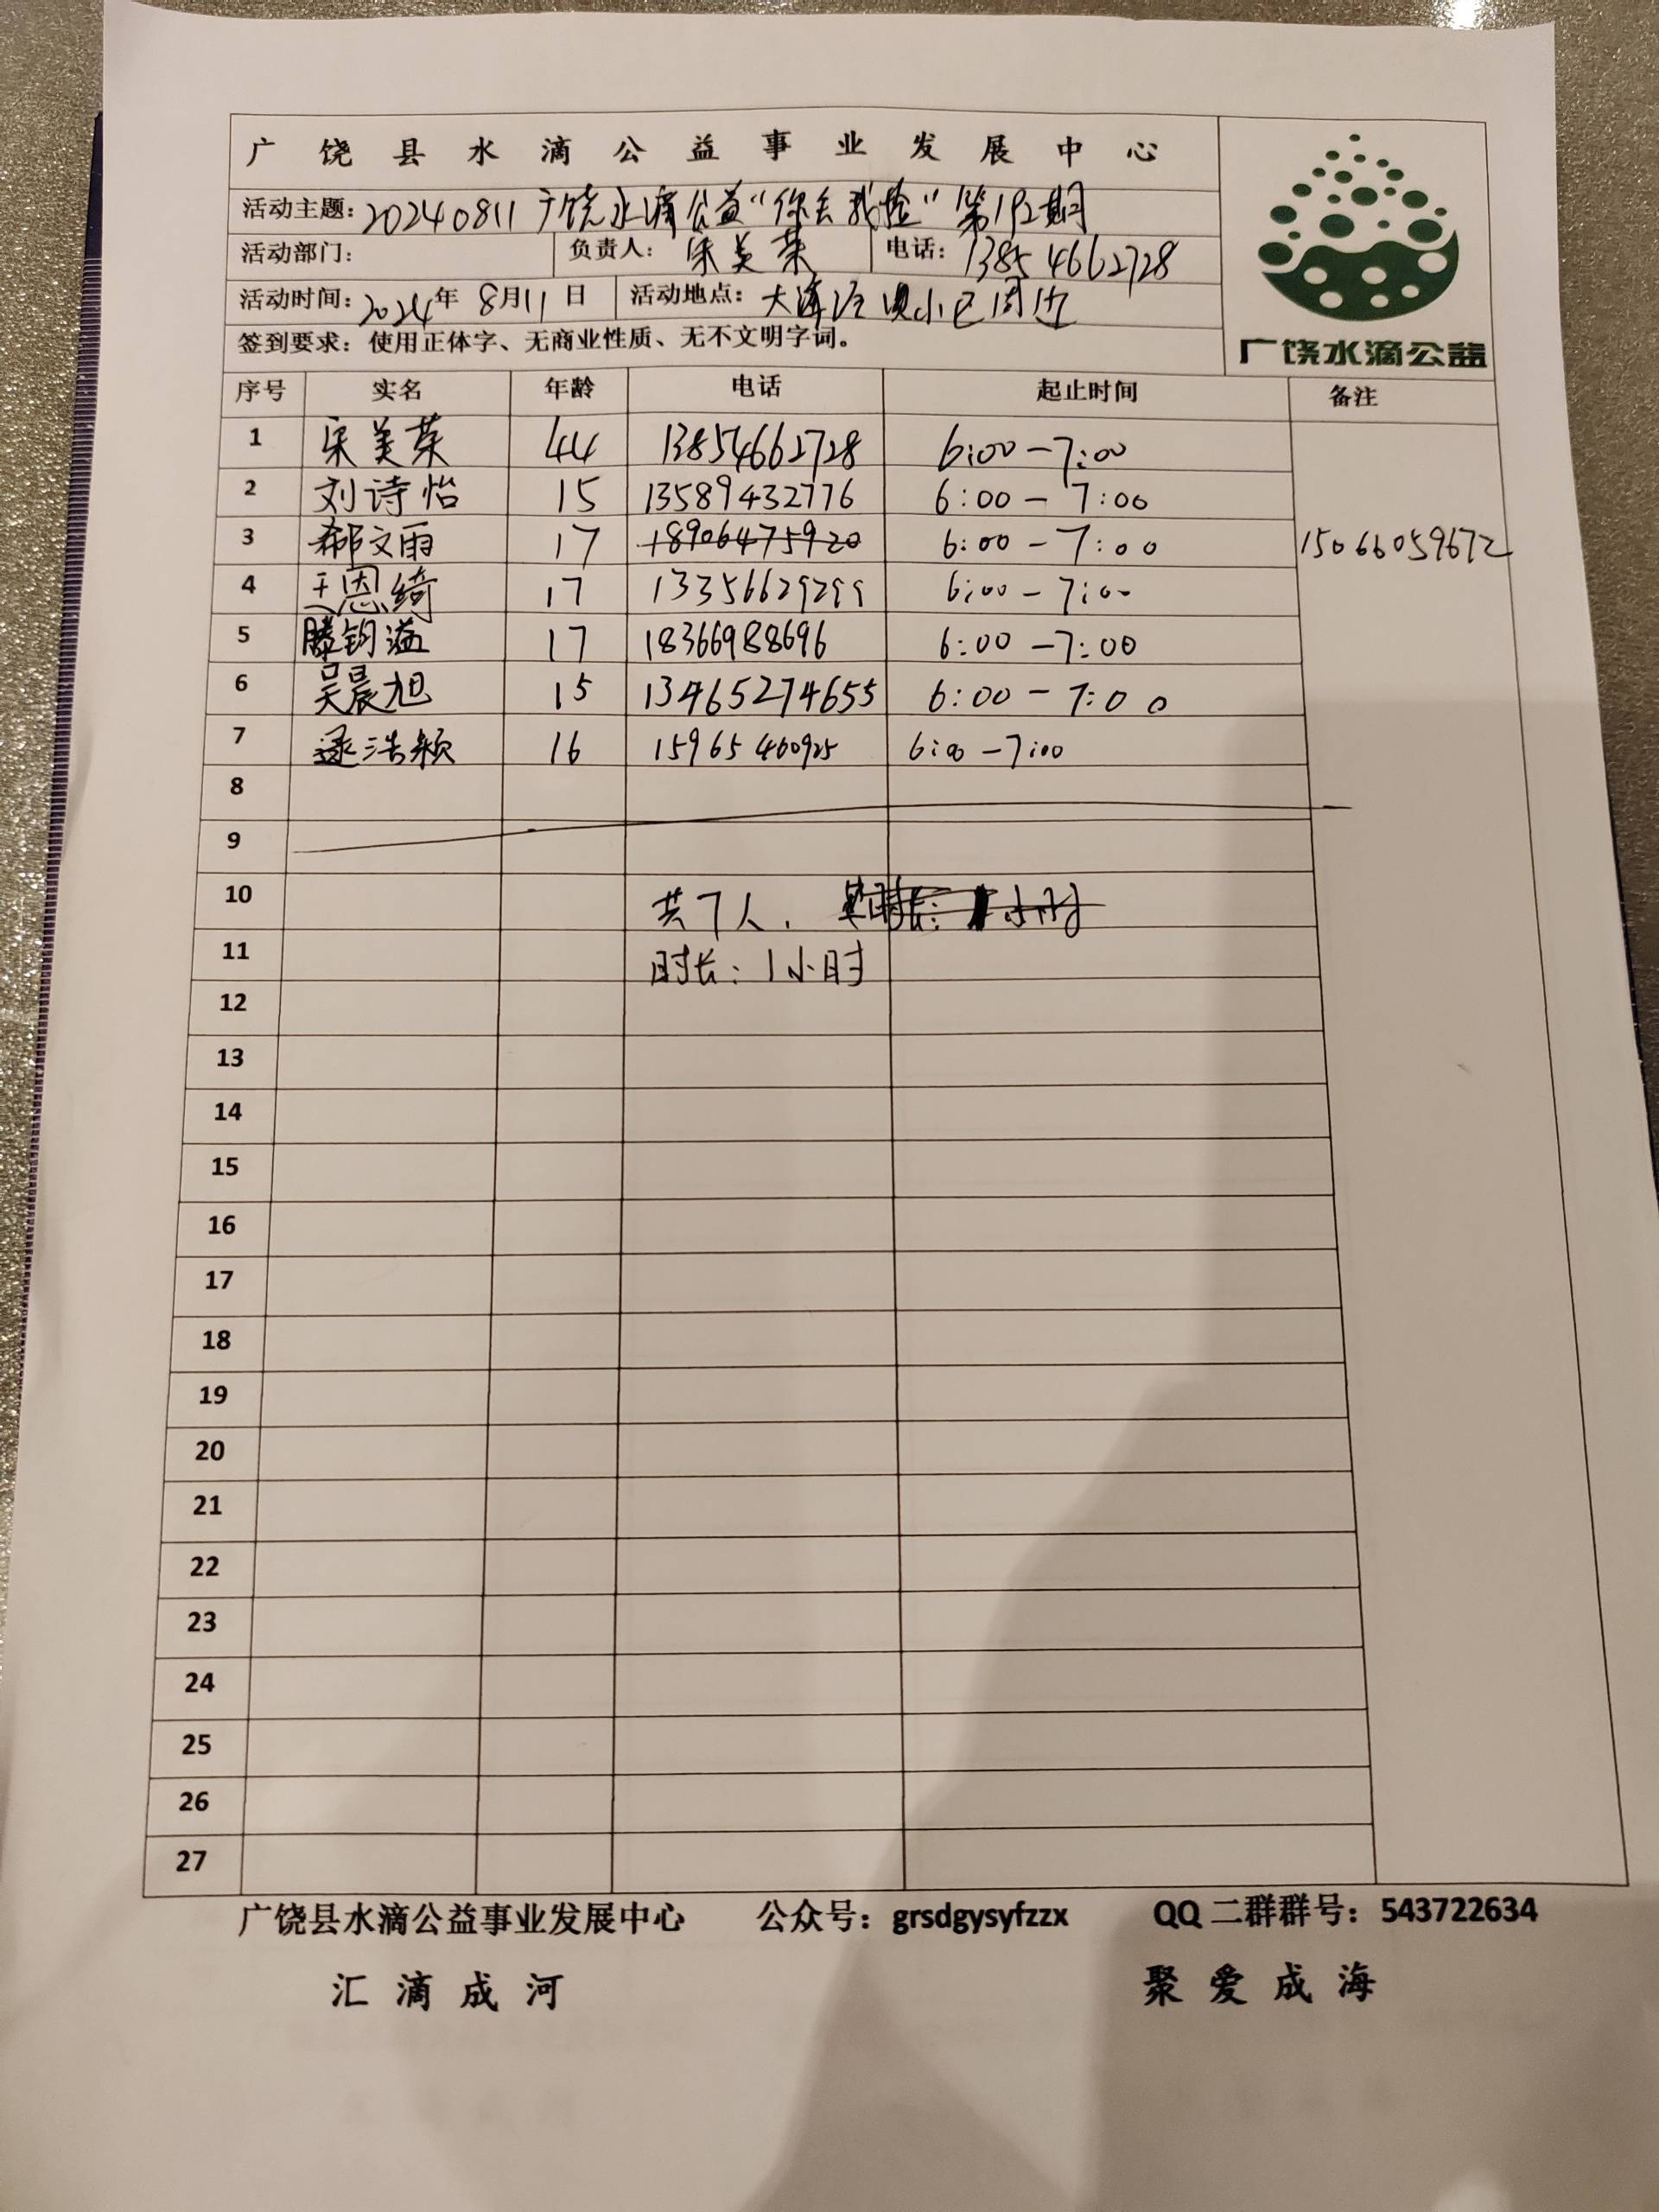 广饶县水滴公益事业发展中心
活动主题：20240811广饶水滴公益“你丢我捡”第192期
活动部门： 负责人：宋美荣 电话：13854662728
活动时间：2024年8月11日 活动地点：大海 小区周边
签到要求：使用正体字、无商业性质、无不文明字词。
广饶水滴公益
序号 实名 年龄 电话 起止时间 备注
1 宋美荣 44 13854662728 6:00-7:00
2 刘诗怡 15 13589432776 6:00-7:00
3 郗文雨 17 18906475920 6:00-7:00 15066059672
4 王恩绮 17 13356629299 6:00-7:00
5 滕钧溢 17 18366988696 6:00-7:00
6 吴晨旭 15 13465274655 6:00-7:00
7 逯浩颖 16 15965460925 6:00-7:00
8
9
10 共7人.
11 时长：1小时
12
13
14
15
16
17
18
19
20
21
22
23
24
25
26
27
广饶县水滴公益事业发展中心 公众号：grsdgysyfzzx QQ二群群号：543722634
汇滴成河 聚爱成海